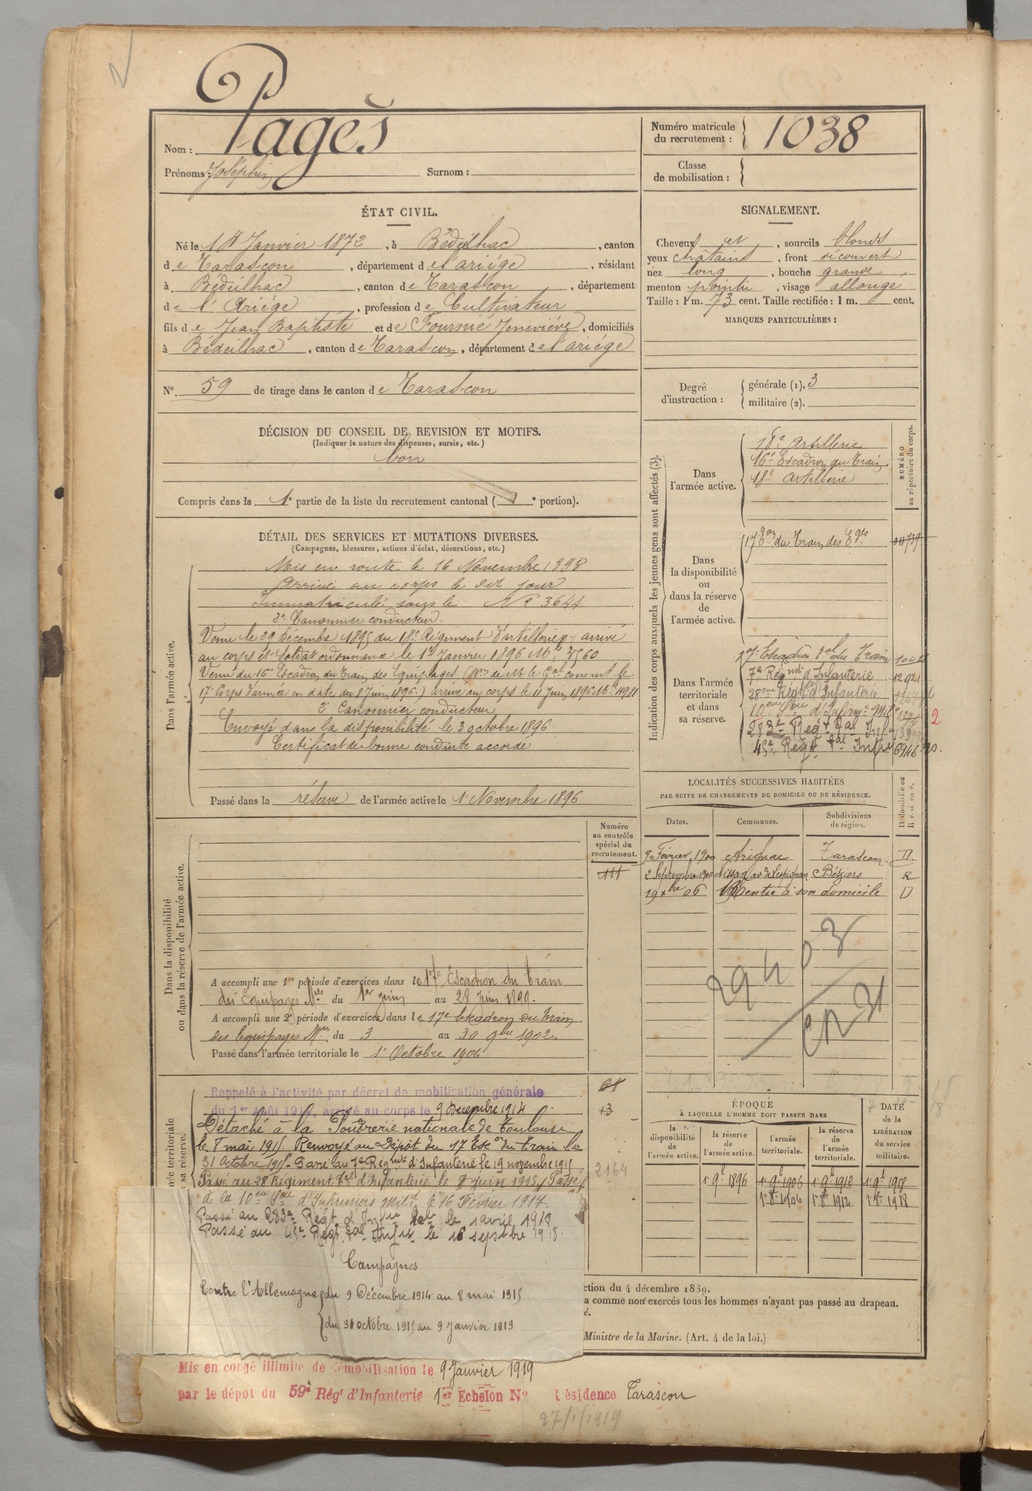 Pagès
Nom :
Prénoms : Joséphin Surnom :
Numéro matricule du recrutement : 1038
Classe de mobilisation :
ÉTAT CIVIL.
Né le 1er Janvier 1872, à Bédeilhac, canton
de Tarascon, département de l'ariége, résidant
à Bédeilhac, canton de Tarascon, département
de l'Ariége, profession de Cultivateur
fils de Jean Baptiste et de Fournié Jeneviève, domiciliés
à Bédeilhac, canton de Tarascon, département de l'ariége
N° 59 de tirage dans le canton de Tarascon
SIGNALEMENT.
Cheveux et, sourcils blonds
yeux chatains, front découvert
nez long, bouche grande,
menton pointu, visage allongé
Taille : 1 m. 73 cent. Taille rectifiée : 1 m. cent.
MARQUES PARTICULIÈRES :
Degré d'instruction : générale (1). 3
militaire (2).
DÉCISION DU CONSEIL DE REVISION ET MOTIFS.
(Indiquer la nature des dispenses, sursis, etc.)
bon
Compris dans la 1e partie de la liste du recrutement cantonal ( e portion).
DÉTAIL DES SERVICES ET MUTATIONS DIVERSES.
(Campagnes, blessures, actions d'éclat, décorations, etc.)
Dans l'armée active.
Mis en route le 16 Novembre 1893
Arrivé au corps le dit jour
Immatriculé sous le N° 3644
2e Canonnier conducteur.
Venu le 29 Décembre 1895 du 18e Régiment d'artillerie, arrivé
au corps et Soldat ordonnance le 1er Janvier 1896
Venu du 16e Escadron du Train des Equipages.
17e Corps d'armée en date du 8 Juin 1896.) arrivé au corps le 11 Juin 1896
2e Canonnier conducteur
Envoyé dans la disponibilité le 3 octobre 1896
Certificat de bonne conduite accordé
Passé dans la réserve de l'armée active le 1er Novembre 1896
Indication des corps auxquels les jeunes gens sont affectés (3).
NUMÉRO au répertoire du corps.
Dans l'armée active.
18e Artillerie
16e Escadron du Train
18e Artillerie
Dans la disponibilité ou dans la réserve de l'armée active.
17e Eon du Train des Eqes
Dans l'armée territoriale et dans sa réserve.
17e Escadron Tal du Train
7e Régnt d'Infanterie
28eme Régt d'Infanterie
283e Régt
45e Régt
LOCALITÉS SUCCESSIVES HABITÉES
PAR SUITE DE CHANGEMENTS DE DOMICILE OU DE RÉSIDENCE.
Dates. Communes. Subdivisions de région.
9 Février 1900 Arignac Tarascon D
Béziers R
19 Xbre 06 Rentré à son domicile D
Dans la disponibilité ou dans la réserve de l'armée active.
Numéro au contrôle spécial du recrutement.
A accompli une 1re période d'exercices dans le 17e Escadron du Train
des Equipages Mres du 1er juin au 28 Juin 1899.
A accompli une 2e période d'exercices dans le 17e Escadron du Train
des Equipages Mres du 3 au 30 9bre 1902
Passé dans l'armée territoriale le 1er Octobre 1906
Rappelé à l'activité par décret de mobilisation générale
du 1er août 1914, arrivé au corps le 9 Décembre 1914
Détaché à la Poudrerie nationale de Toulouse
le 8 mai 1915. Renvoyé au Dépôt du 17 Escon du Train le
31 Octobre 1915. Passé au 7e Régnt d'Infanterie le 19 novembre 1915
Passé au 28 Régiment Tal d'Infanterie le 8 Juin 1916, Passé
à la 10eme Son d'Infirmiers Milres le 16 Février 1917.
Passé au 283e Régt d'Infie le 1 avril 1918
Passé au 45e Régt Tal Infie le 16 septbre 1918.
2164
Campagnes
Contre l'Allemagne du 9 Décembre 1914 au 8 mai 1915
du 31 octobre 1915 au 9 janvier 1919
ÉPOQUE
À LAQUELLE L'HOMME DOIT PASSER DANS
la disponibilité de l'armée active. la réserve de l'armée active. l'armée territoriale. la réserve de l'armée territoriale.
DATE de la LIBÉRATION du service militaire.
ction du 4 décembre 1889.
a comme non exercés tous les hommes n'ayant pas passé au drapeau.
Ministre de la Marine. (Art. 4 de la loi.)
Mis en congé illimité de démobilisation le 9 Janvier 1919
par le dépôt du 59e Régt d'Infanterie 1er Echelon N° Résidence Tarascon
27/1/1919